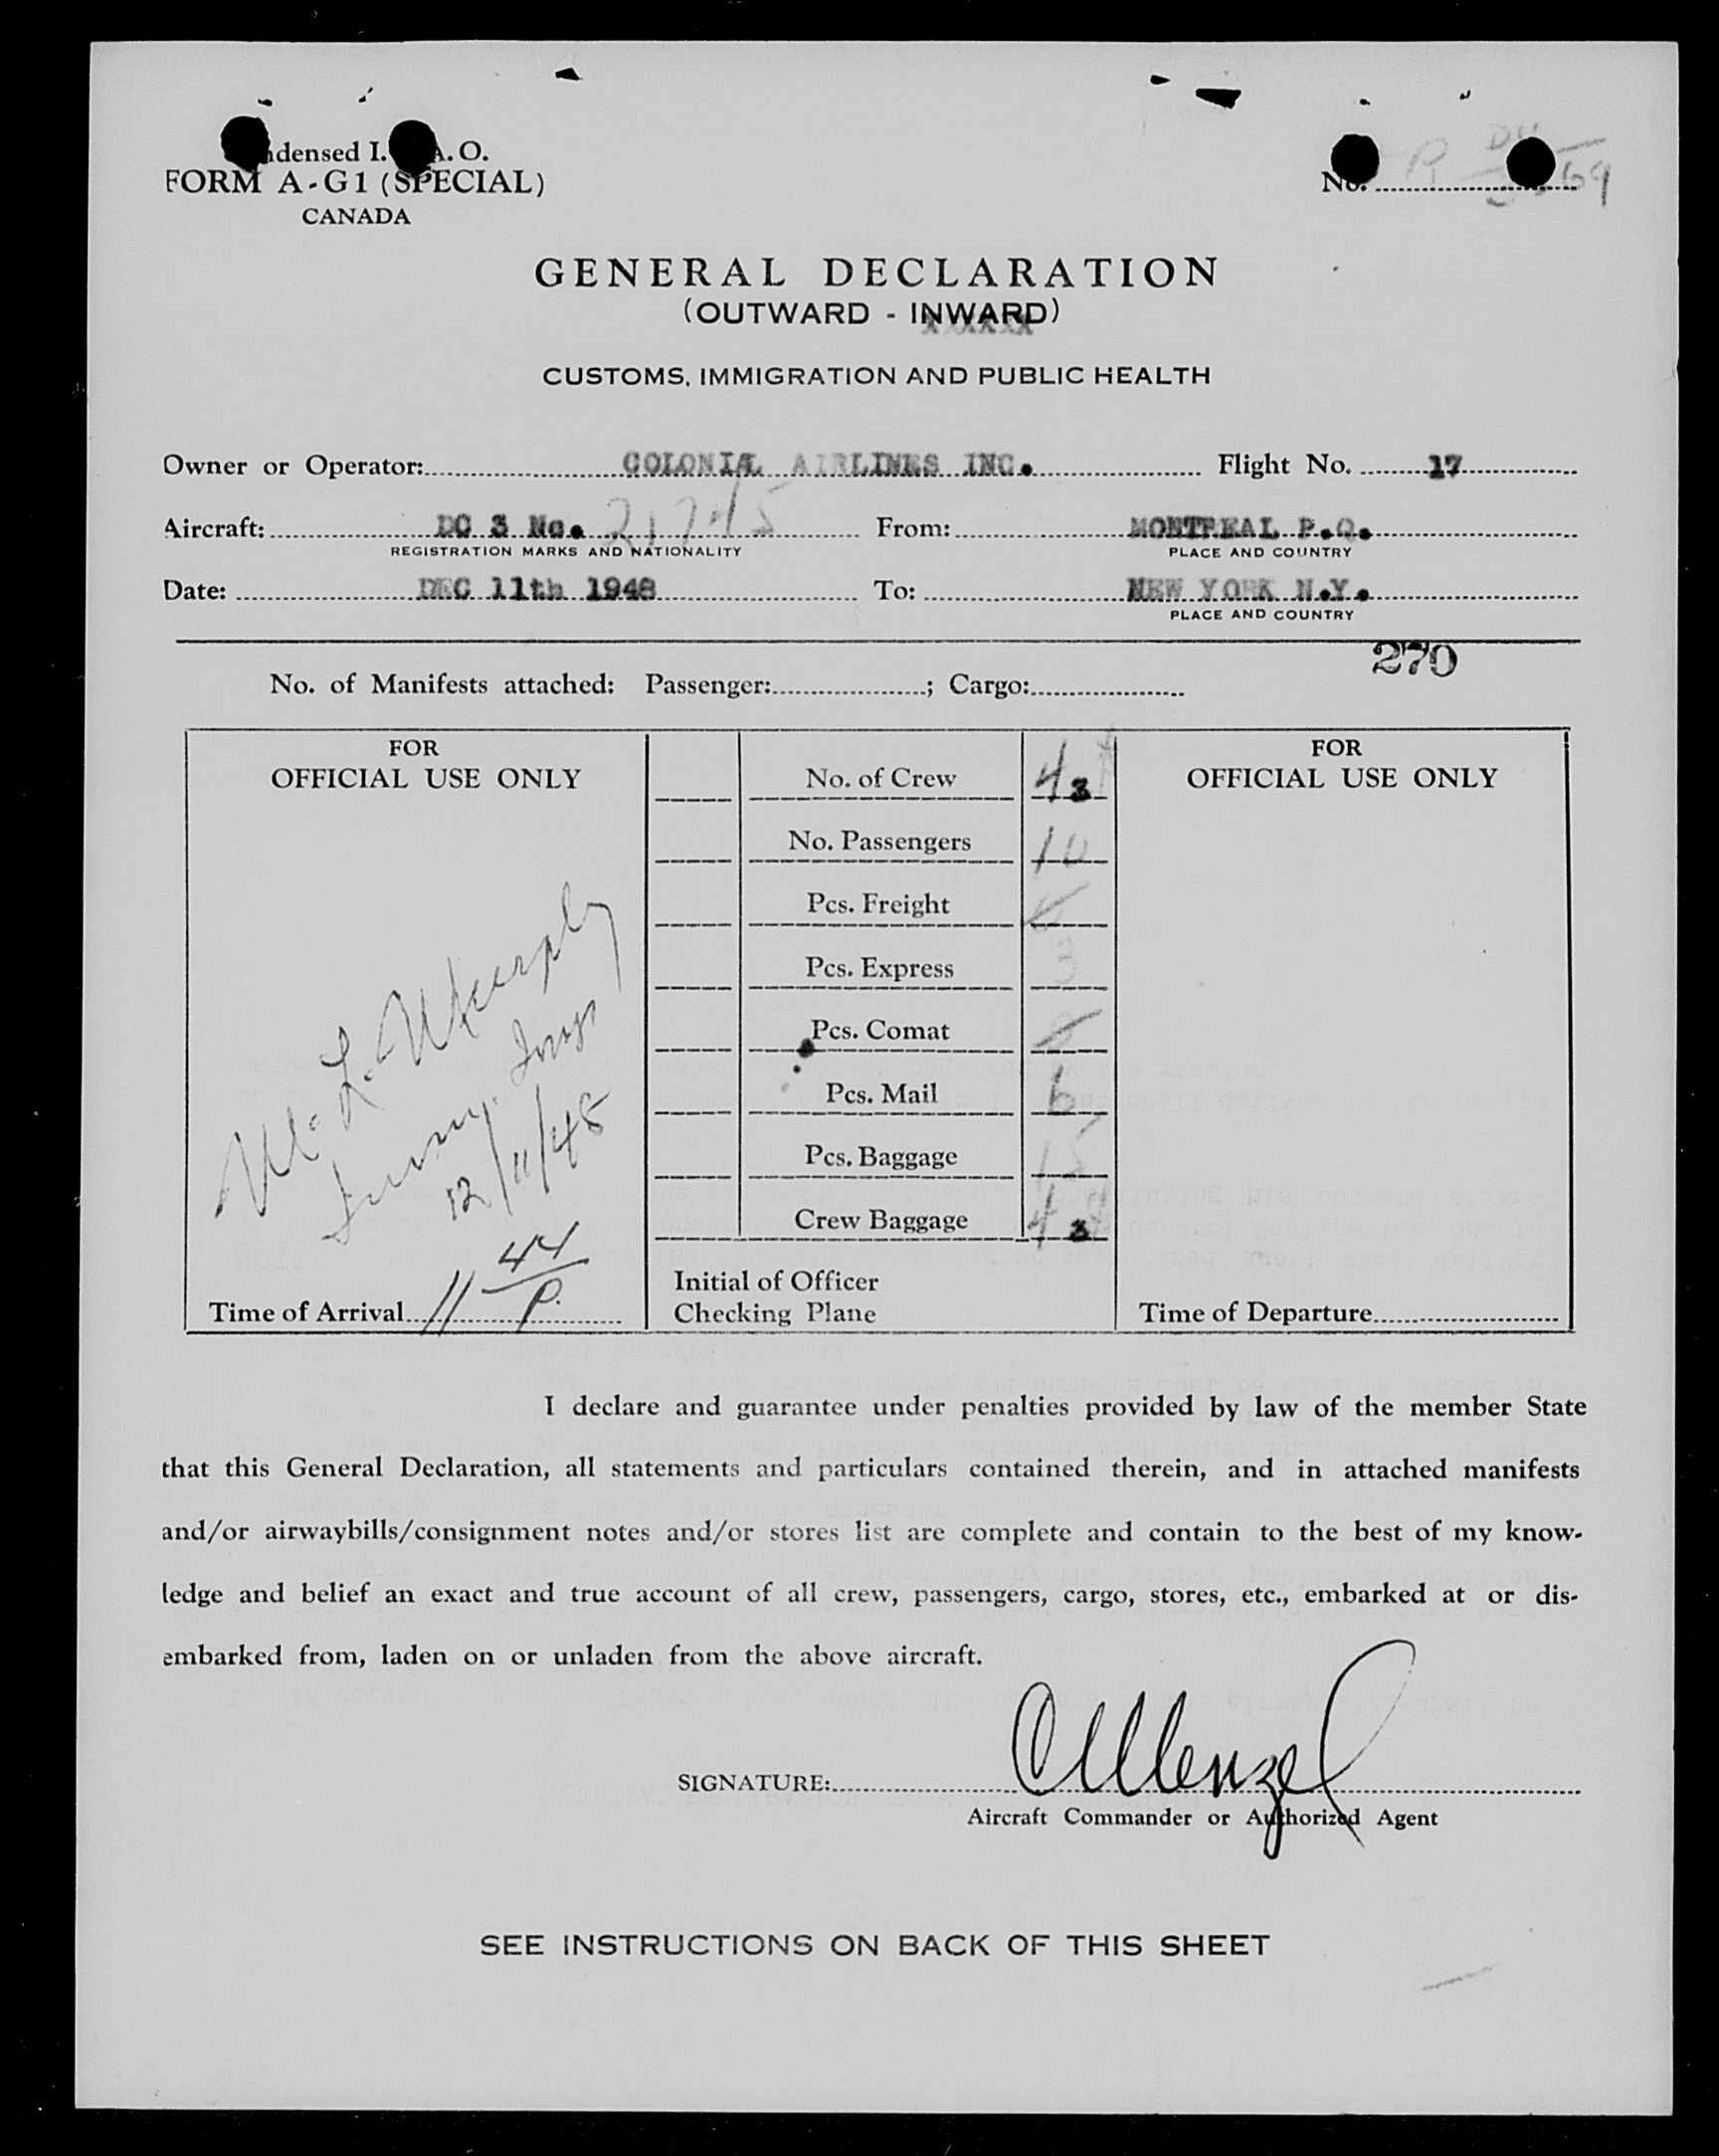 densed I. A. O.
FORM A-G1 (SPECIAL)
CANADA
No. R 69
GENERAL DECLARATION
(OUTWARD - INWARD)
XXXXXX
CUSTOMS, IMMIGRATION AND PUBLIC HEALTH
Owner or Operator: COLONIAL AIRLINES INC. Flight No. 17
Aircraft: DC 3 No. 21745 From: MONTREAL P.Q.
REGISTRATION MARKS AND NATIONALITY PLACE AND COUNTRY
Date: DEC 11th 1948 To: NEW YORK N.Y.
PLACE AND COUNTRY
270
No. of Manifests attached: Passenger: ; Cargo:
FOR
OFFICIAL USE ONLY
M. L. Murphy
Immig. Insp
12/11/48
Time of Arrival 11 44 P.
No. of Crew 4 3
No. Passengers 10
Pcs. Freight
Pcs. Express 3
Pcs. Comat
Pcs. Mail 6
Pcs. Baggage 15
Crew Baggage 4 3
Initial of Officer
Checking Plane
FOR
OFFICIAL USE ONLY
Time of Departure
I declare and guarantee under penalties provided by law of the member State
that this General Declaration, all statements and particulars contained therein, and in attached manifests
and/or airwaybills/consignment notes and/or stores list are complete and contain to the best of my know-
ledge and belief an exact and true account of all crew, passengers, cargo, stores, etc., embarked at or dis-
embarked from, laden on or unladen from the above aircraft.
SIGNATURE: Menzel
Aircraft Commander or Authorized Agent
SEE INSTRUCTIONS ON BACK OF THIS SHEET